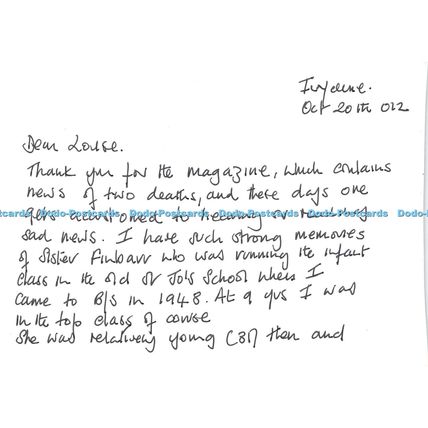 Ivydene.
Oct 20th 012
Dear Louise.
Thank you for the magazine, which contains
news of two deaths, and these days one
gets accustomed to hearing or reading
Dodo-Postcards Dodo-Postcards Dodo-Postcards Dodo-Postcards
sad news. I have such strong memories
of Sister Finbarr who was running the infant
class in the old St Jo's School when I
came to B/S in 1948. At 9 yrs I was
in the top class of course
She was relatively young (38) then and